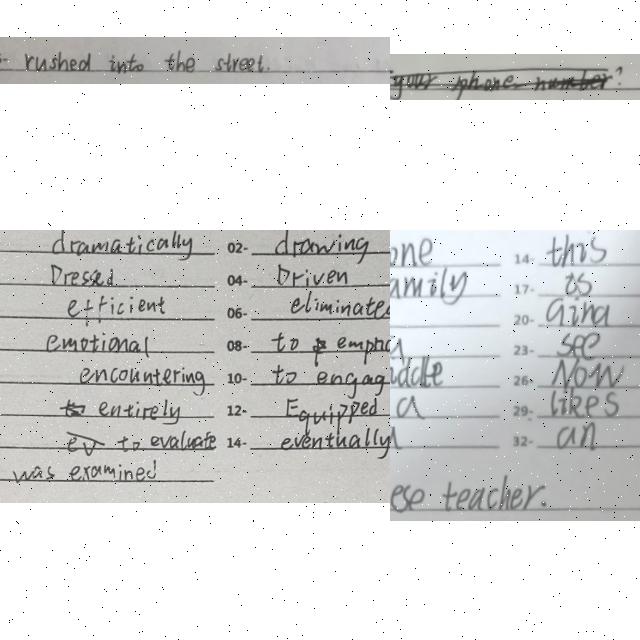 rushed into the street.
your phone number?
dramatically 02- drawing
Dressed 04- Driven
efficient 06- eliminate
emotional 08- to empha
encountering 10- to engag
entirely 12- Equipped
to evaluate 14- eventually
was examined
one 14- this
amily 17- is
20- Gina
23- see
iddle 26- Now
a 29- likes
32- an
ese teacher.